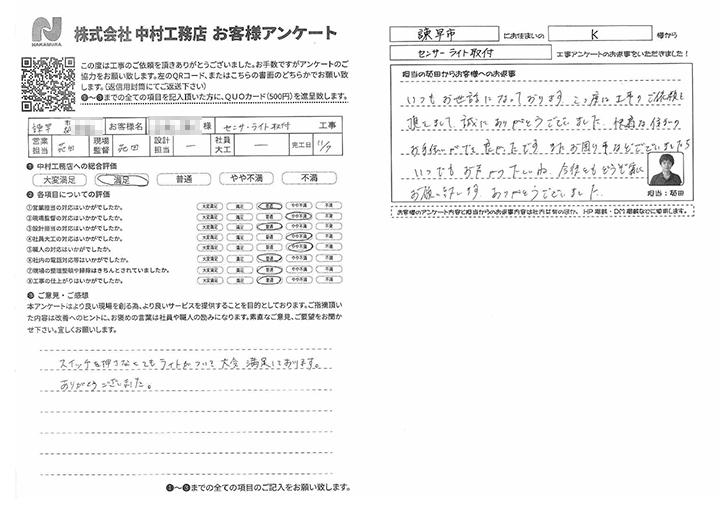 NAKAMURA
株式会社 中村工務店 お客様アンケート
この度は工事のご依頼を頂きありがとうございました。お手数ですがアンケートのご
協力をお願い致します。左のQRコード、またはこちらの書面のどちらかでお願い致
します。(返信用封筒にてご返送下さい)
❶~❸までの全ての項目を記入頂いた方に、QUOカード(500円)を進呈致します。
諫早 市 お客様名 様 センサーライト取付 工事
営業担当 苑田 現場監督 苑田 設計担当 ー 社員大工 ー 完工日
❶ 中村工務店への総合評価
大変満足 満足 普通 やや不満 不満
❷ 各項目についての評価
①営業担当の対応はいかがでしたか。 大変満足 満足 普通 やや不満 不満
②現場監督の対応はいかがでしたか。 大変満足 満足 普通 やや不満 不満
③設計担当の対応はいかがでしたか。 大変満足 満足 普通 やや不満 不満
④社員大工の対応はいかがでしたか。 大変満足 満足 普通 やや不満 不満
⑤職人の対応はいかがでしたか。 大変満足 満足 普通 やや不満 不満
⑥社内の電話対応等はいかがでしたか。 大変満足 満足 普通 やや不満 不満
⑦現場の整理整頓や掃除はきちんとされていましたか。 大変満足 満足 普通 やや不満 不満
⑧工事の仕上がりはいかがでしたか。 大変満足 満足 普通 やや不満 不満
❸ ご意見・ご感想
本アンケートはより良い現場を創る為、より良いサービスを提供することを目的としております。ご指摘頂い
た内容は改善へのヒントに、お褒めの言葉は社員や職人の励みになります。素直なご意見、ご要望をお聞か
せ下さい。宜しくお願いします。
スイッチを押さなくてもライトがついて大変満足しております。
ありがとうございました。
❶~❸までの全ての項目のご記入をお願い致します。
諫早市 にお住まいの K 様から
センサーライト取付 工事アンケートのお返事をいただきました!
担当の苑田からお客様へのお返事
いつもお世話になっております。この度は工事のご依頼を
頂きまして誠にありがとうございました。快適な住まいの
お手伝いができて良かったです。またお困り事などございましたら
いつでもお声かけ下さいね。今後ともどうぞ宜しく
お願い致します。ありがとうございました。
担当:苑田
お客様のアンケート内容と担当からのお返事内容は社内共有のほか、HP掲載・DM掲載などに使用します。